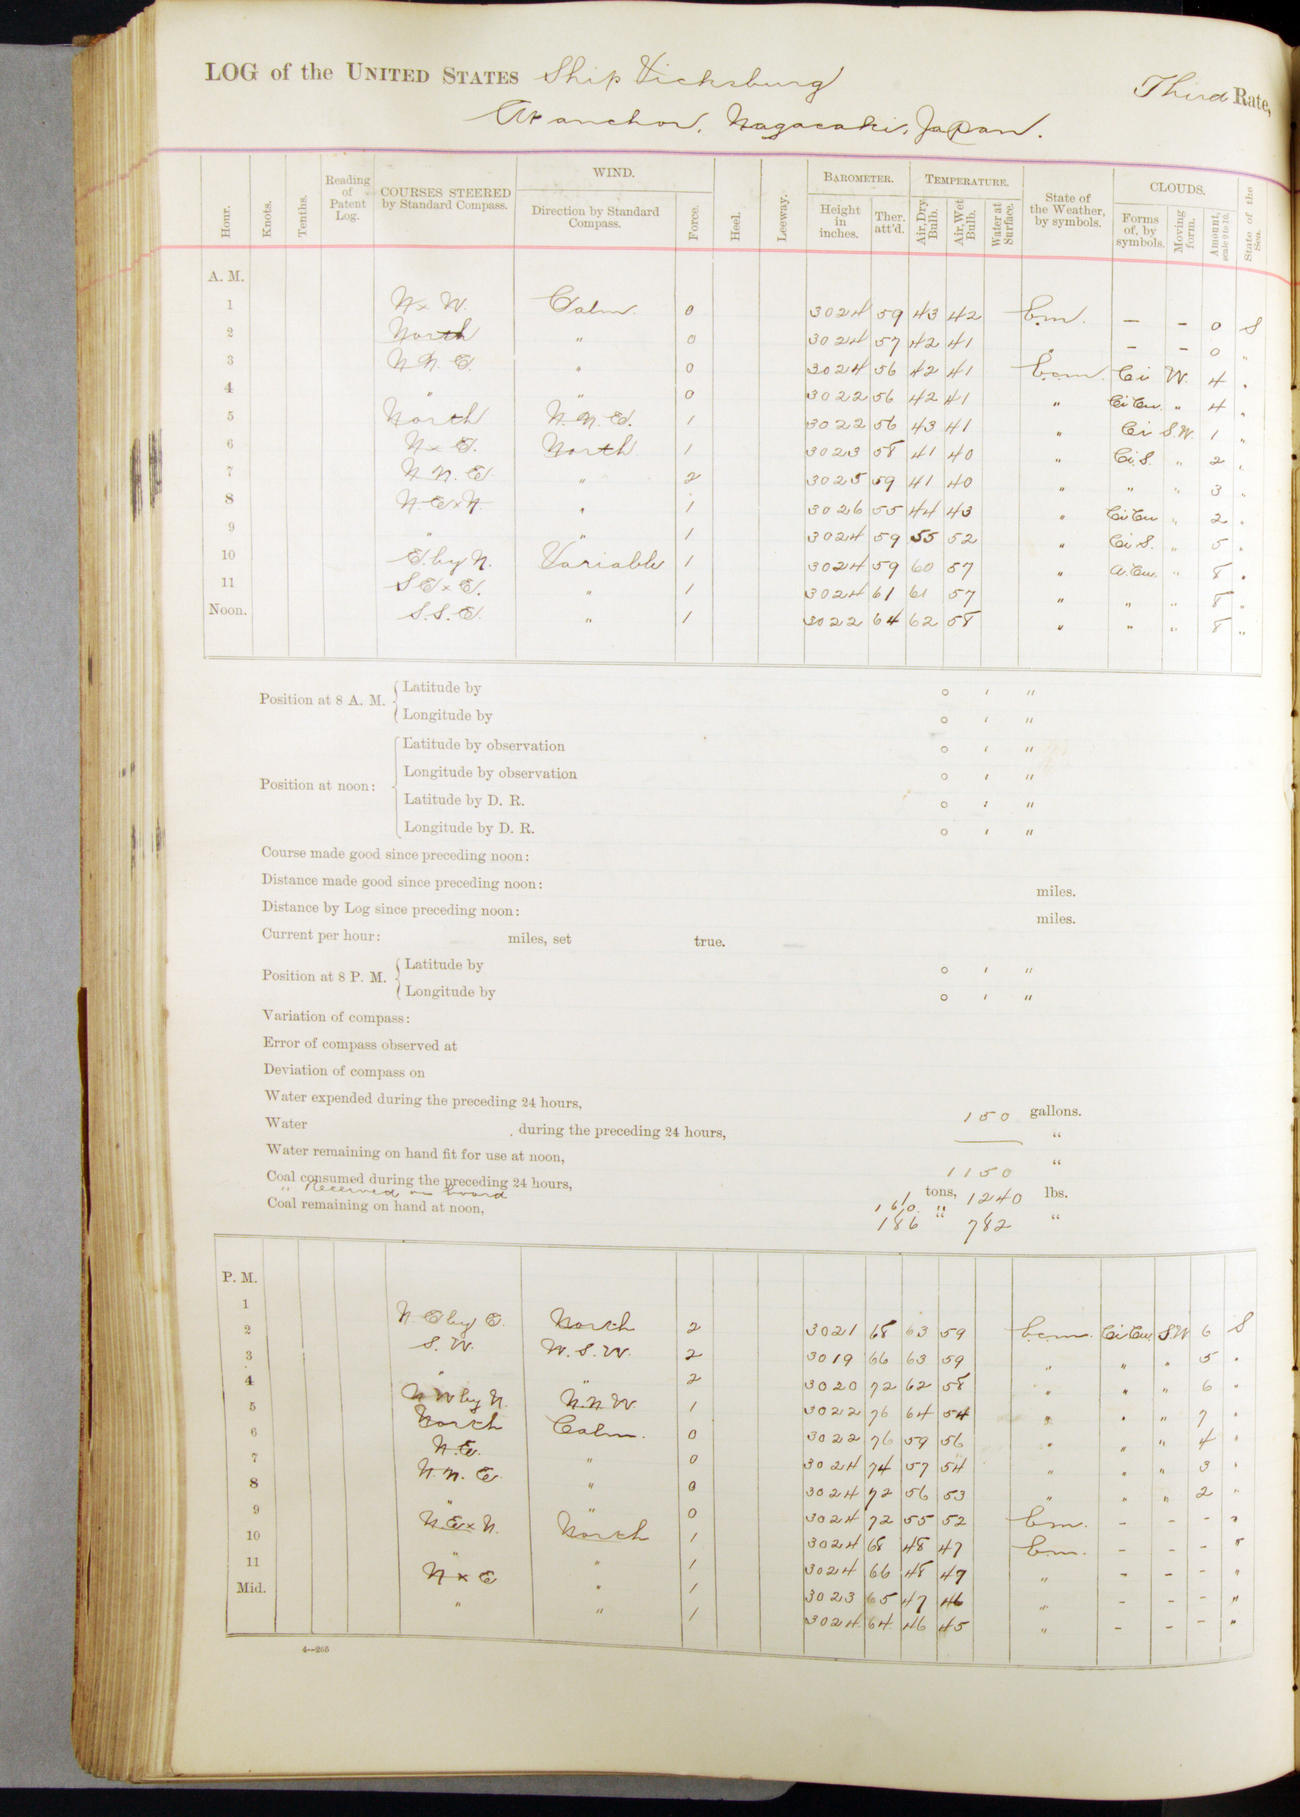 LOG of the UNITED STATES Ship Vicksburg Third Rate,
At anchor, Nagasaki, Japan.
Hour. Knots. Tenths. Reading of Patent Log. COURSES STEERED by Standard Compass. WIND. Direction by Standard Compass. Force. Heel. Leeway. BAROMETER. Height in inches. Ther. att'd. TEMPERATURE. Air, Dry Bulb. Air, Wet Bulb. Water at Surface. State of the Weather, by symbols. CLOUDS. Forms of, by symbols. Moving form. Amount, scale 0 to 10. State of the Sea.
A. M.
1 N x W. Calm. 0 3024 59 43 42 b.m. — – 0 S
2 North " 0 3024 57 42 41 " – – 0 "
3 N.N.E. " 0 3024 56 42 41 b.c.m. Ci W. 4 "
4 " " 0 3022 56 42 41 " Ci Cu. " 4 "
5 North N.N.E. 1 3022 56 43 41 " Ci S.W. 1 "
6 N x E. North 1 3023 58 41 40 " Ci.S. " 2 "
7 N.N.E. " 2 3025 59 41 40 " " " 3 "
8 N.E x N. " 1 3026 55 44 43 " Ci Cu " 2 "
9 " " 1 3024 59 55 52 " Ci S. " 5 "
10 E. by N. Variable 1 3024 59 60 57 " A.Cu. " 8 "
11 S E x E. " 1 3024 61 61 57 " " " 8 "
Noon. S.S.E. " 1 3022 64 62 58 " " " 8 "
Position at 8 A. M. Latitude by ° ′ ″
Longitude by ° ′ ″
Position at noon: Latitude by observation ° ′ ″
Longitude by observation ° ′ ″
Latitude by D. R. ° ′ ″
Longitude by D. R. ° ′ ″
Course made good since preceding noon:
Distance made good since preceding noon: miles.
Distance by Log since preceding noon: miles.
Current per hour: miles, set true.
Position at 8 P. M. Latitude by ° ′ ″
Longitude by ° ′ ″
Variation of compass:
Error of compass observed at
Deviation of compass on
Water expended during the preceding 24 hours, 150 gallons.
Water , during the preceding 24 hours, — "
Water remaining on hand fit for use at noon, 1150 "
Coal consumed during the preceding 24 hours, 1 tons, 1240 lbs.
" Received on board 160. "
Coal remaining on hand at noon, 186 " 782 "
P. M.
1 N. E by E. North 2 3021 68 63 59 b.c.m. Ci Cu. S.W 6 S
2 S. W. W.S.W. 2 3019 66 63 59 " " " 5 "
3 " " 2 3020 72 62 58 " " " 6 "
4 N W by N. N.N.W. 1 3022 76 64 54 " " " 7 "
5 North Calm. 0 3022 76 59 56 " " " 4 "
6 N.E. " 0 3024 74 57 54 " " " 3 "
7 N.N.E. " 0 3024 72 56 53 " " " 2 "
8 " " 0 3024 72 55 52 b.m. – – – "
9 N.E x N. North 1 3024 68 48 47 b.m. – – – "
10 " " 1 3024 66 48 47 " – – – "
11 N x E " 1 3023 65 47 46 " – – – "
Mid. " " 1 3024 64 46 45 " – – – "
4—265